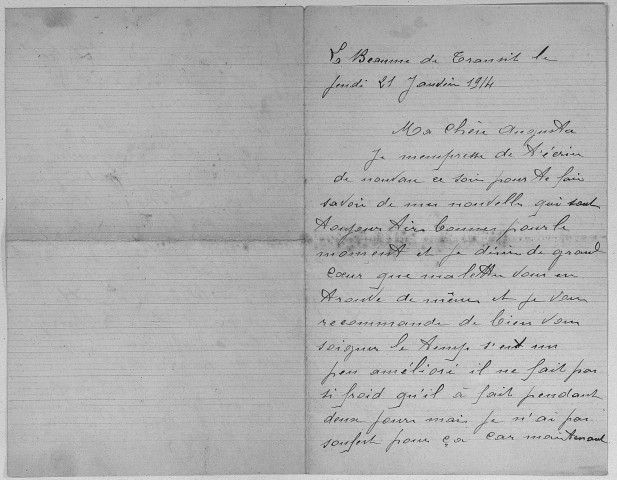 La Beaume de Transit le
Jeudi 21 Janvier 1914
Ma Chère Augusta
Je mempresse de t'écrire
de nouveau ce soir pour te faire
savoir de mes nouvelles qui sont
toujours très bonnes pour le
moment et je désire de grand
cœur que ma lettre vous en
trouve de même et je vous
recommande de bien vous
soigner le temp s'est un
peu amélioré il ne fait pas
si froid qu'il à fait pendant
deux jours mais je n'ai pas
soufert pour ça car maintenant